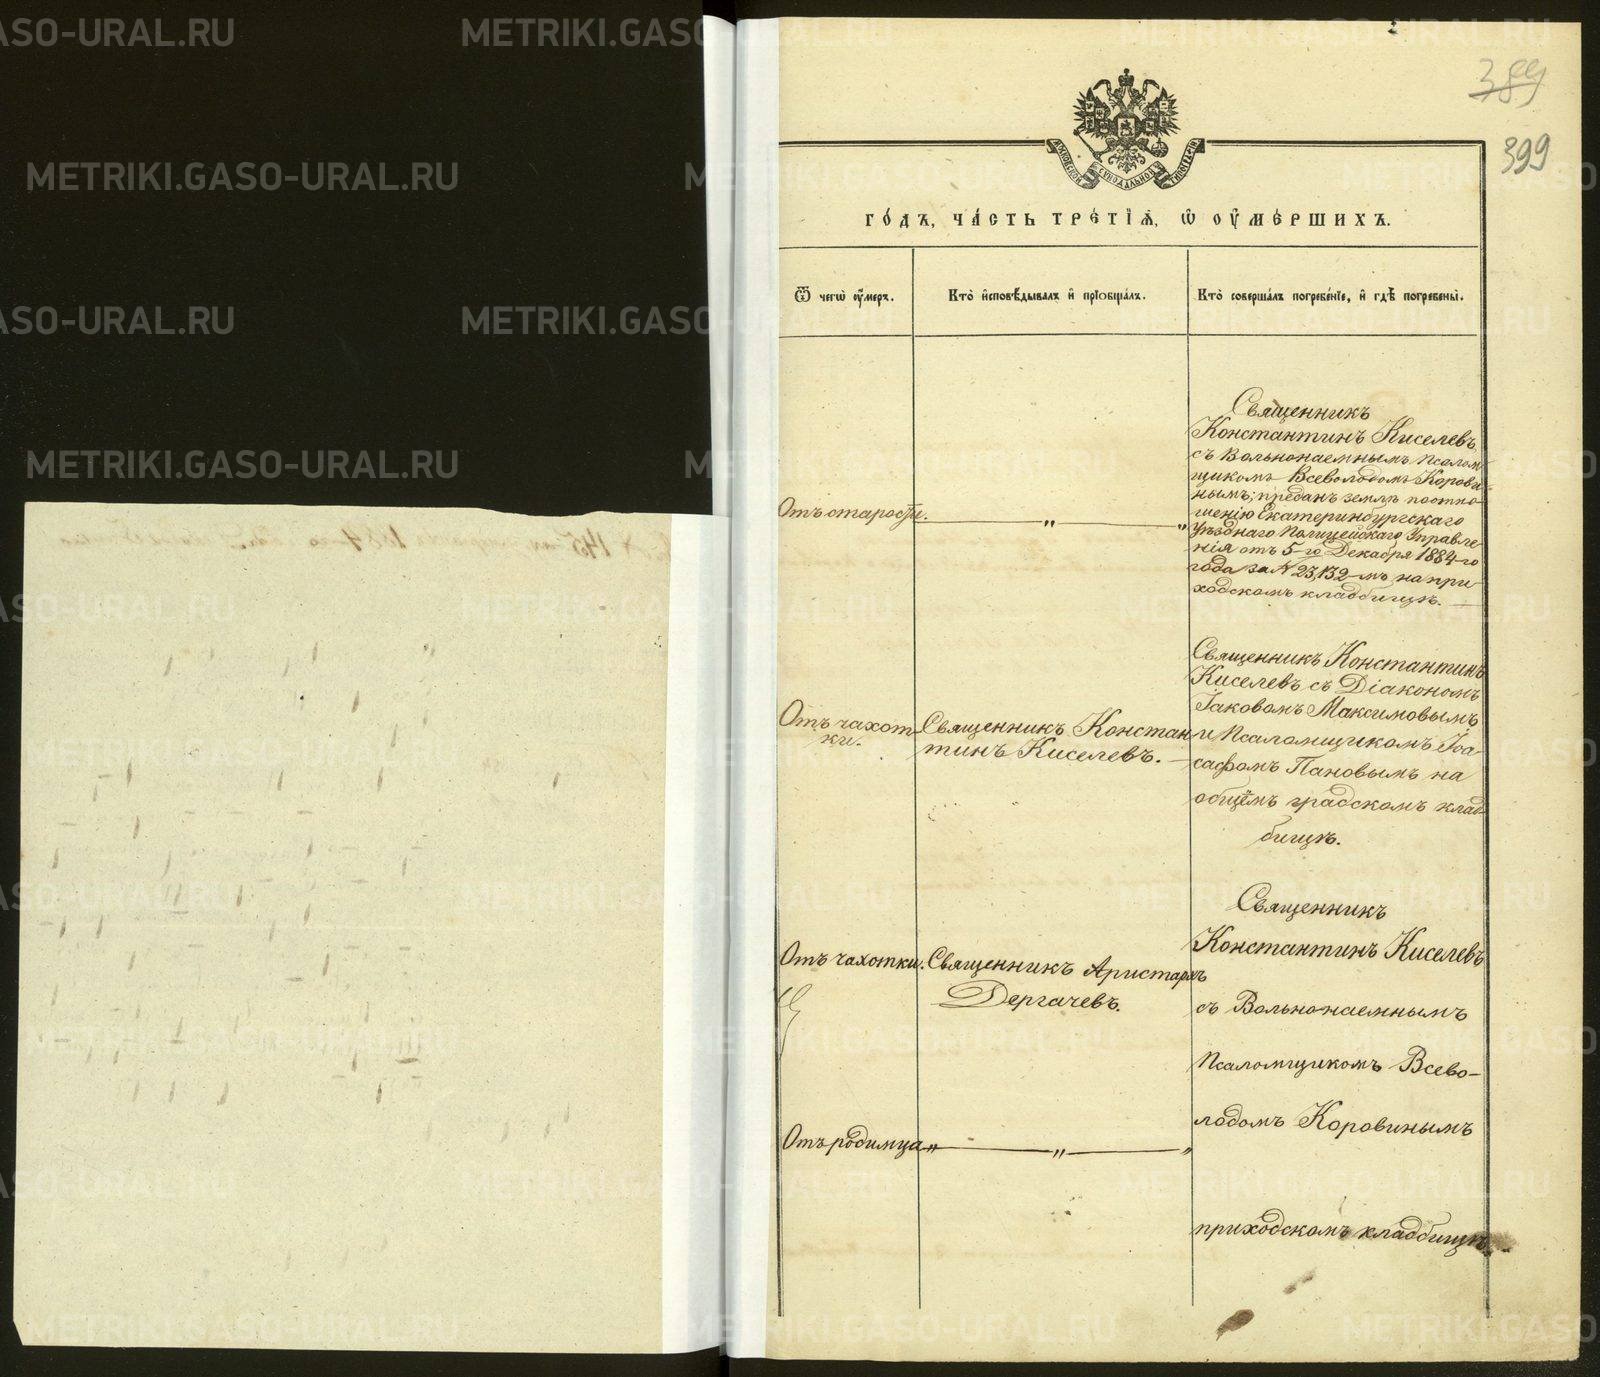 389
399
МОСКОВСКОЙ СѴНОДАЛЬНОЙ ТИПОГРАФІИ
ГО́ДЪ, ЧА́СТЬ ТРЕ́ТІѦ, Ѡ ОУ҆МЕ́РШИХЪ.
Ѿ чегѡ̀ оу҆́меръ.
Кто̀ и҆сповѣ́дывалъ и҆ прїѡбща́лъ.
Кто̀ соверша́лъ погребе́нїе, и҆ гдѣ̀ погребены̀.
Отъ старости.
„ — „ — „
Священникъ
Константинъ Киселевъ
съ Вольнонаемнымъ Псалом-
щикомъ Всеволодомъ Корови-
нымъ; преданъ землѣ по отно-
шенію Екатеринбургскаго
Уѣзднаго Полицейскаго Управле-
нія отъ 5-го Декабря 1884-го
года за № 23,132-мъ на при-
ходскомъ кладбищѣ.
Отъ чахот-
ки.
Священникъ Констан-
тинъ Киселевъ. —
Священникъ Константинъ
Киселевъ съ Діакономъ
Іаковомъ Максимовымъ
и Псаломщикомъ Іоа-
сафомъ Пановымъ на
общемъ градскомъ клад-
бищѣ.
Отъ чахотки.
Священникъ Аристархъ
Дергачевъ.
Священникъ
Константинъ Киселевъ
съ Вольнонаемнымъ
Псаломщикомъ Всево-
лодомъ Коровинымъ
приходскомъ кладбищѣ.
Отъ родимца
„ — „ — „
METRIKI.GASO-URAL.RU